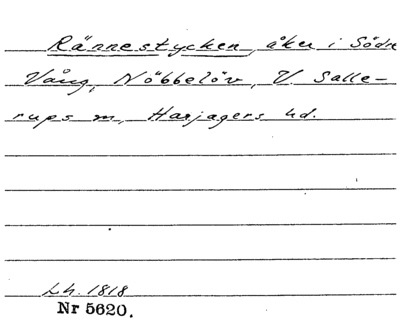 Rännestycken, åker i Södr
Vång, Nöbbelöv, V. Salle-
rups sn, Harjagers hd.
Lh. 1818
Nr 5620.